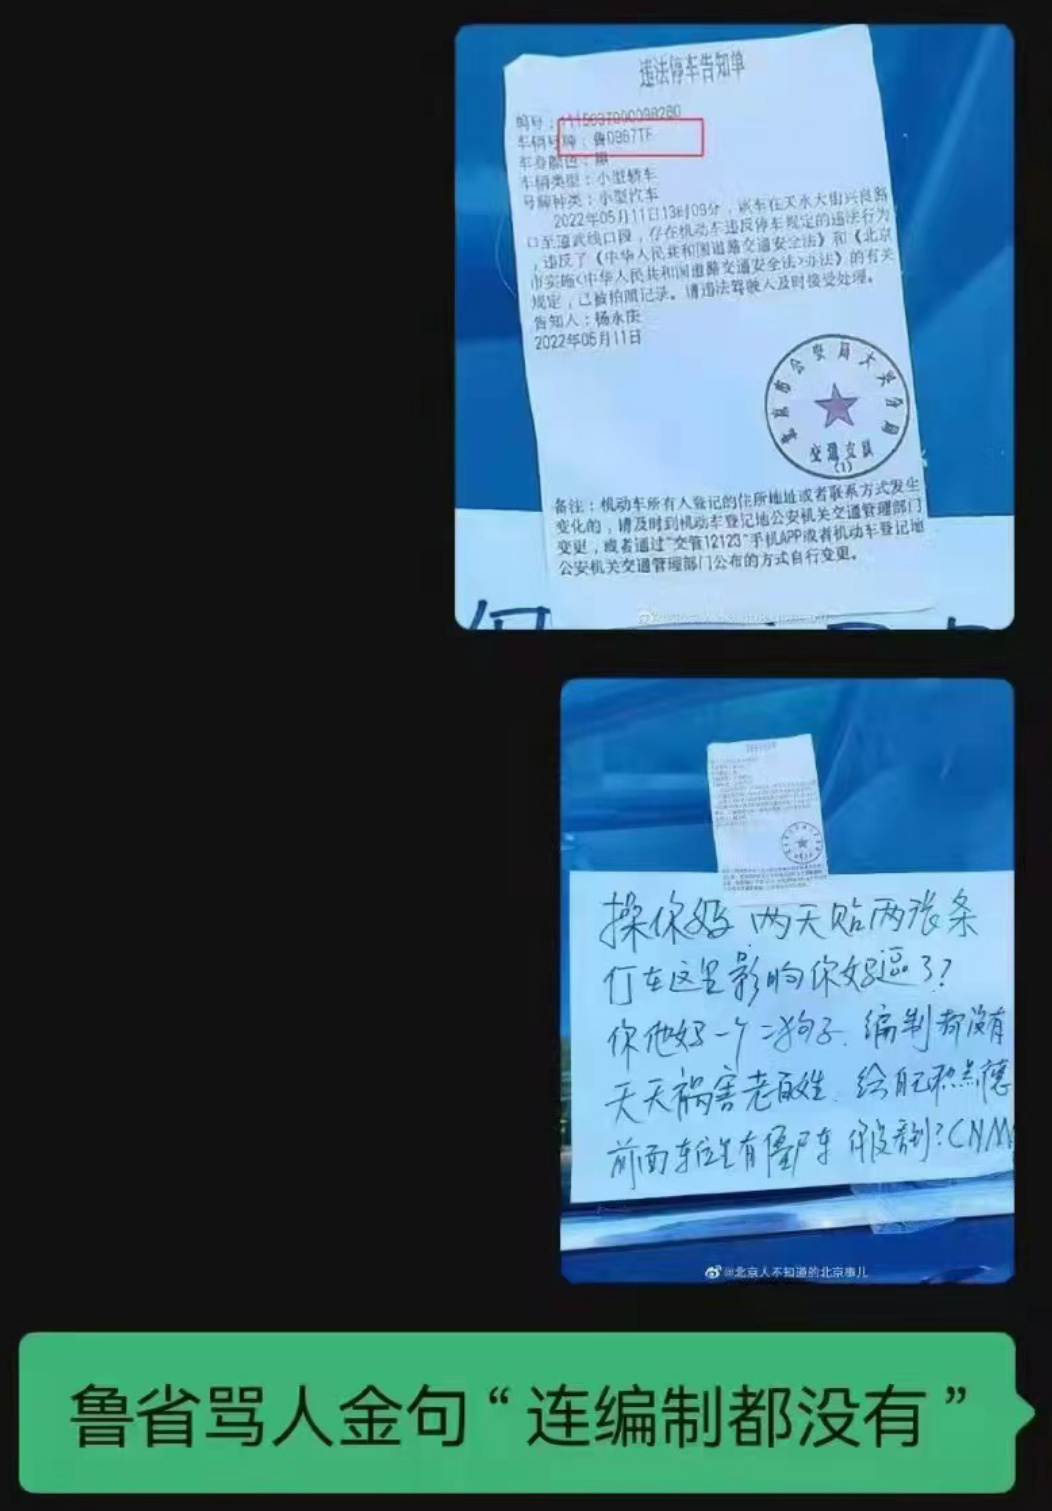 违法停车告知单
编号：1115037900098260
车辆号牌：鲁D987TF
车身颜色：黑
车辆类型：小型轿车
号牌种类：小型汽车
2022年05月11日13时09分，该车在天水大街兴良路
口至道武线口段，存在机动车违反停车规定的违法行为
，违反了《中华人民共和国道路交通安全法》和《北京
市实施<中华人民共和国道路交通安全法>办法》的有关
规定，已被拍照记录。请违法驾驶人及时接受处理。
告知人：杨永庆
2022年05月11日
北京市公安局大兴分局
交通支队
(1)
备注：机动车所有人登记的住所地址或者联系方式发生
变化的，请及时到机动车登记地公安机关交通管理部门
变更，或者通过"交管12123"手机APP或者机动车登记地
公安机关交通管理部门公布的方式自行变更。
操你妈 两天贴两张条
停在这里影响你妈逼了?
你他妈一个二狗子 编制都没有
天天祸害老百姓 给自己积点德
前面车位里有僵尸车 你没看到?CNM
@北京人不知道的北京事儿
鲁省骂人金句“连编制都没有”